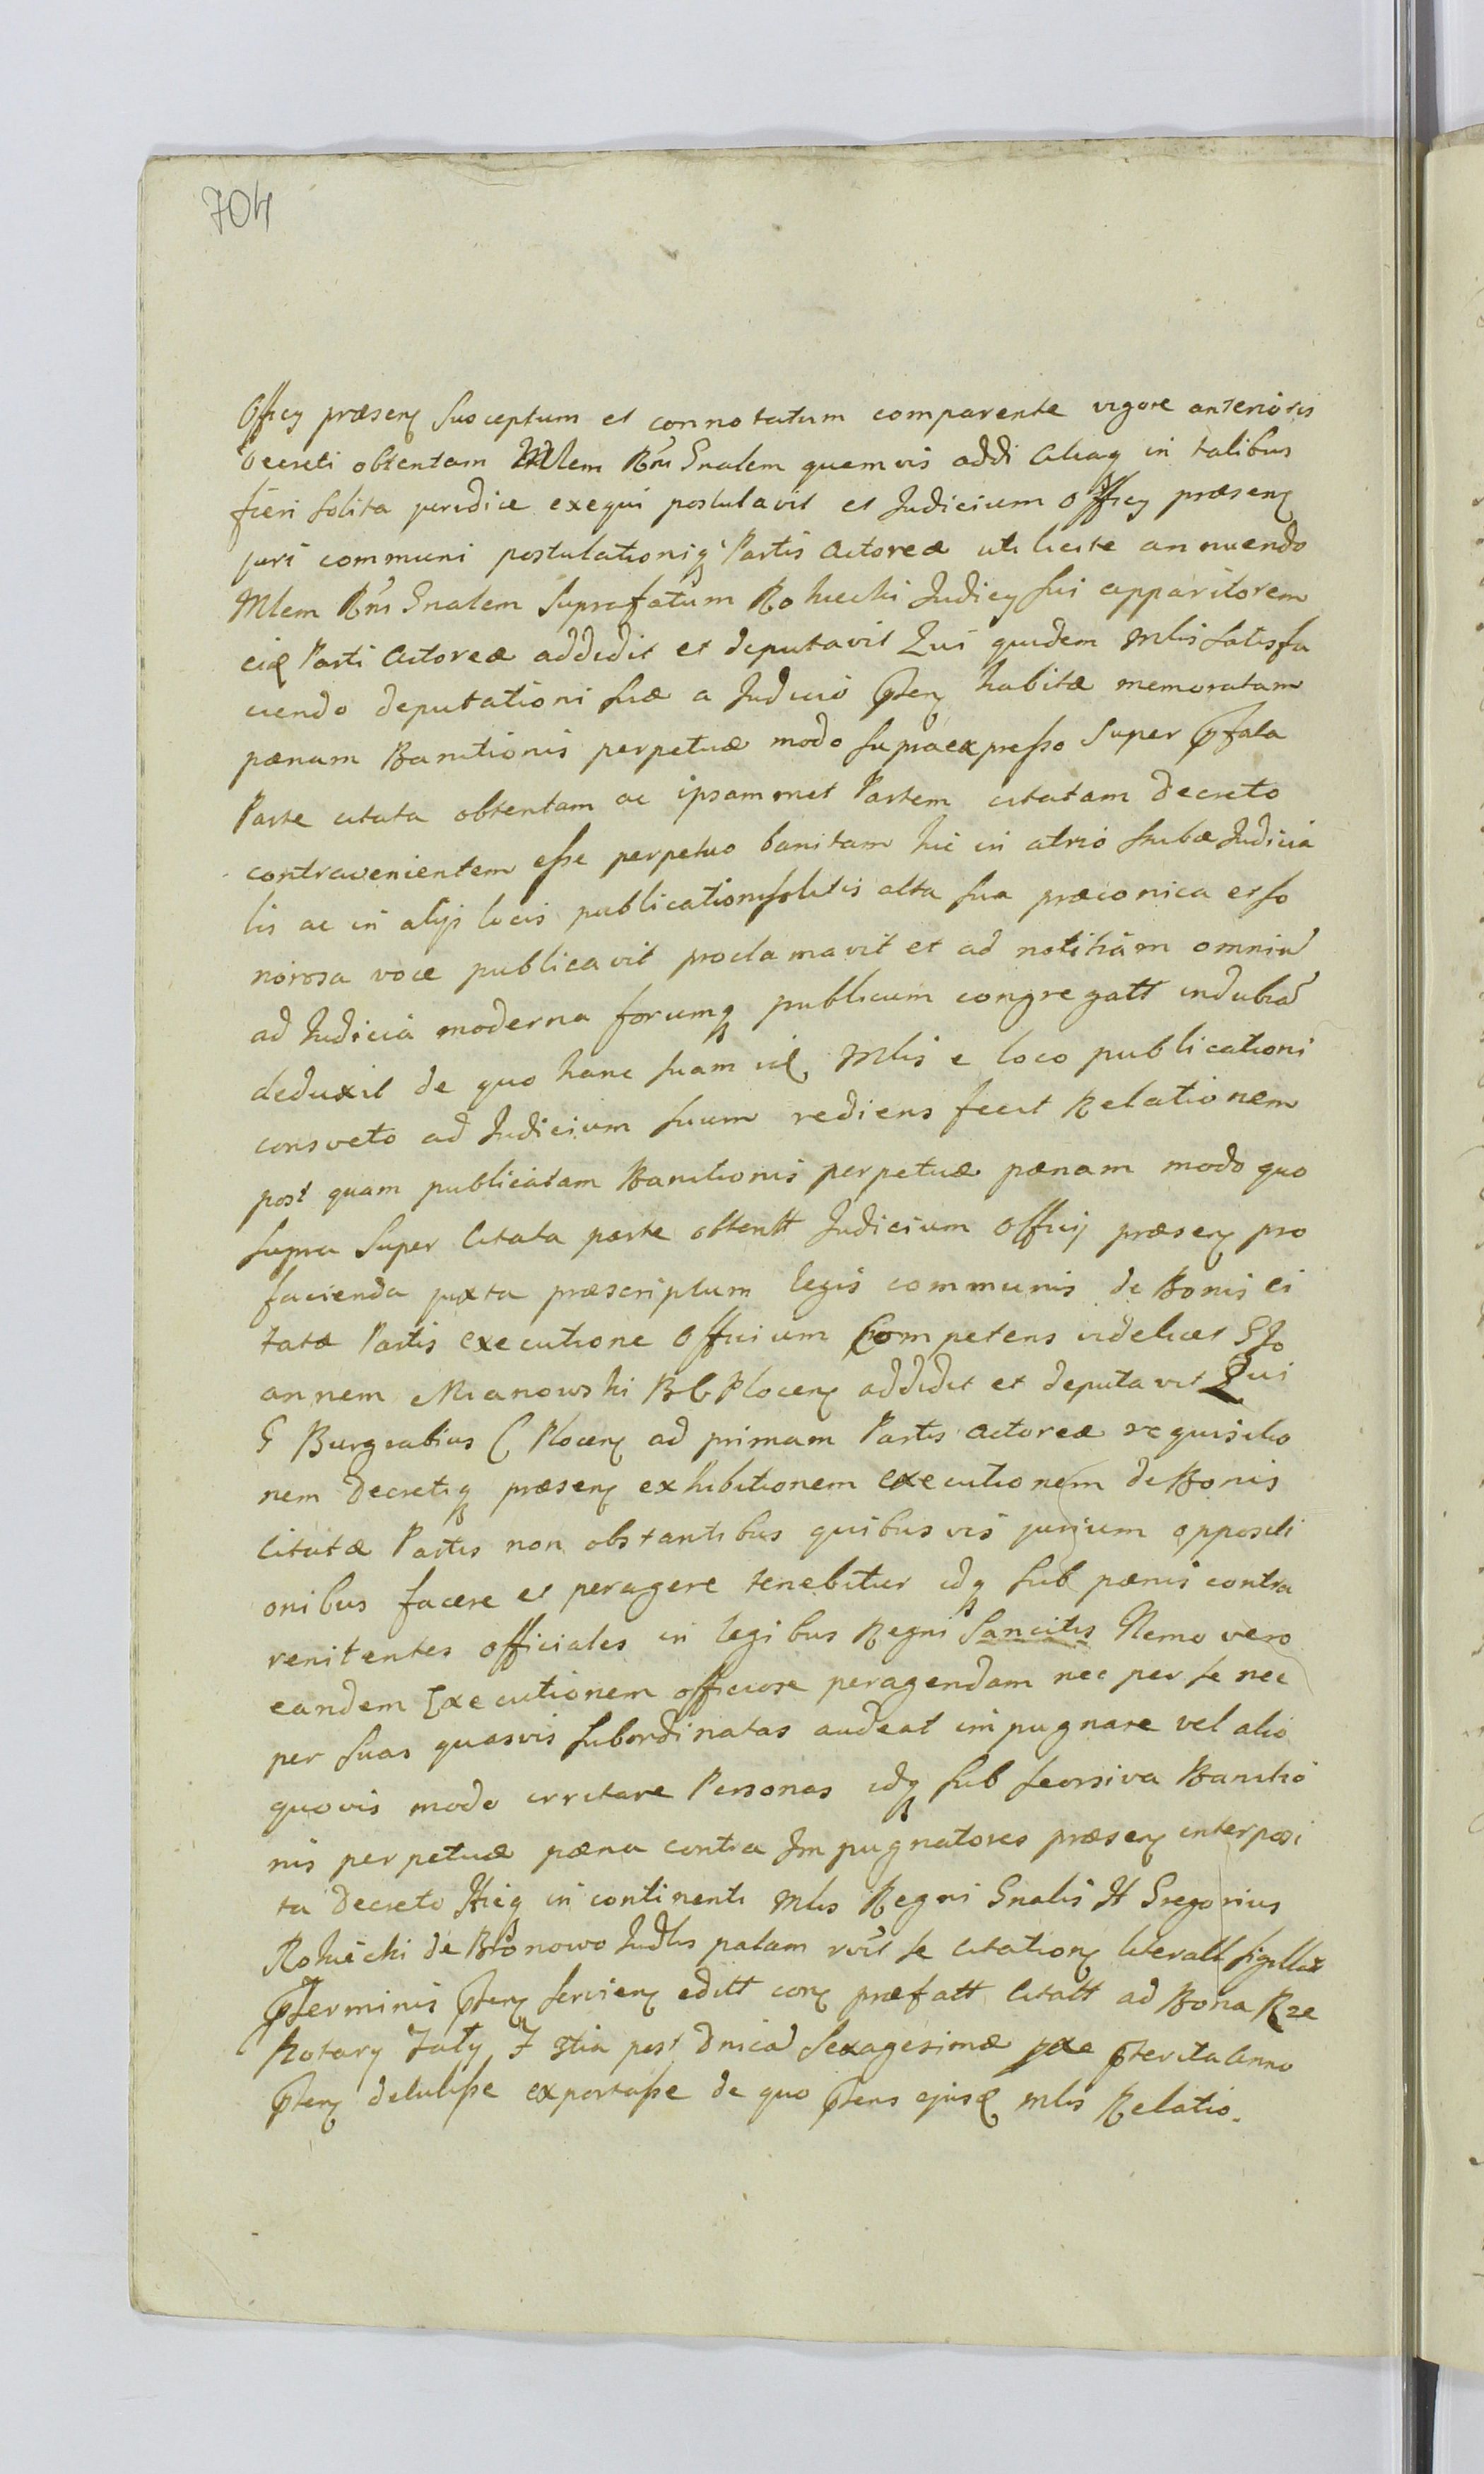 704
Officy præsen susceptum et connotatum comparente vigore anterioris
Decreti obtentam Mlem Rni Gnalem quemvis addi aliaq in talibus
fieri solita juridice exequi postulavit et Judicium Officy præsen
juri communi postulationiq Partis Actoreæ uti licite annuendo
Mlem Rni Gnalem suprafatum Rokicki Judicy sui apparitorem
eid Parti Actoreæ addidit et deputavit Qui quidem Mlis satisfa
ciendo deputationi suæ a Judicio pten habitæ memoratam
pænam Banitionis perpetuæ modo supraexpresso super pfata
Parte citata obtentam ac ipsammet Partem citatam Decreto
contravenientem esse perpetuo banitam hic in atrio stubæ Judicia
lis ac in alijs locis publicationi solitis alta sua præconica et so
norosa voce publicavit proclamavit et ad notitiam omniu
ad Judicia moderna forumq publicum congregatt indubia
deduxit de quo hanc suam id Mlis e loco publicationi
consveto ad Judicium suum rediens fecit Relationem
post quam publicatam Banitionis perpetuæ pænam modo quo
supra super Citata parte obtentt Judicium Officij præsen pro
facienda juxta præscriptum legis communis de Bonis ci
tatæ Partis executione Officium Competens videlicet G Jo
annem Mianowski BC Plocen addidit et deputavit Qui
G Burgrabius C Plocen ad primam Partis Actoreæ requisitio
nem Decretiq præsen exhibitionem executionem de Bonis
Citatæ Partis non obstantibus quibusvis jurium oppositi
onibus facere et peragere tenebitur idq sub pænis contra
renitentes officiales in legibus Regni Sancitis Nemo vero
eandem Executionem officiose peragendam nec per se nec
per suas quasvis subordinatas audeat impugnare vel alio
quovis modo irritare Personas idq sub seorsiva Banitio
nis perpetuæ pæna contra Impugnatores præsen interposi
ta Decreto Hicq in continenti Mlis Regni Gnalis H Gregorius
Rokicki de Bronowo Judlis palam rvit se Citation literatt sigillat
pterminis pten servien editt con præfatt Citatt ad Bona Rze
Rotary Taty F 3tia post Dnica Sexagesimæ pxe pterita Anno
pten detulisse exportasse de quo ptens ejusd mlis Relatio.